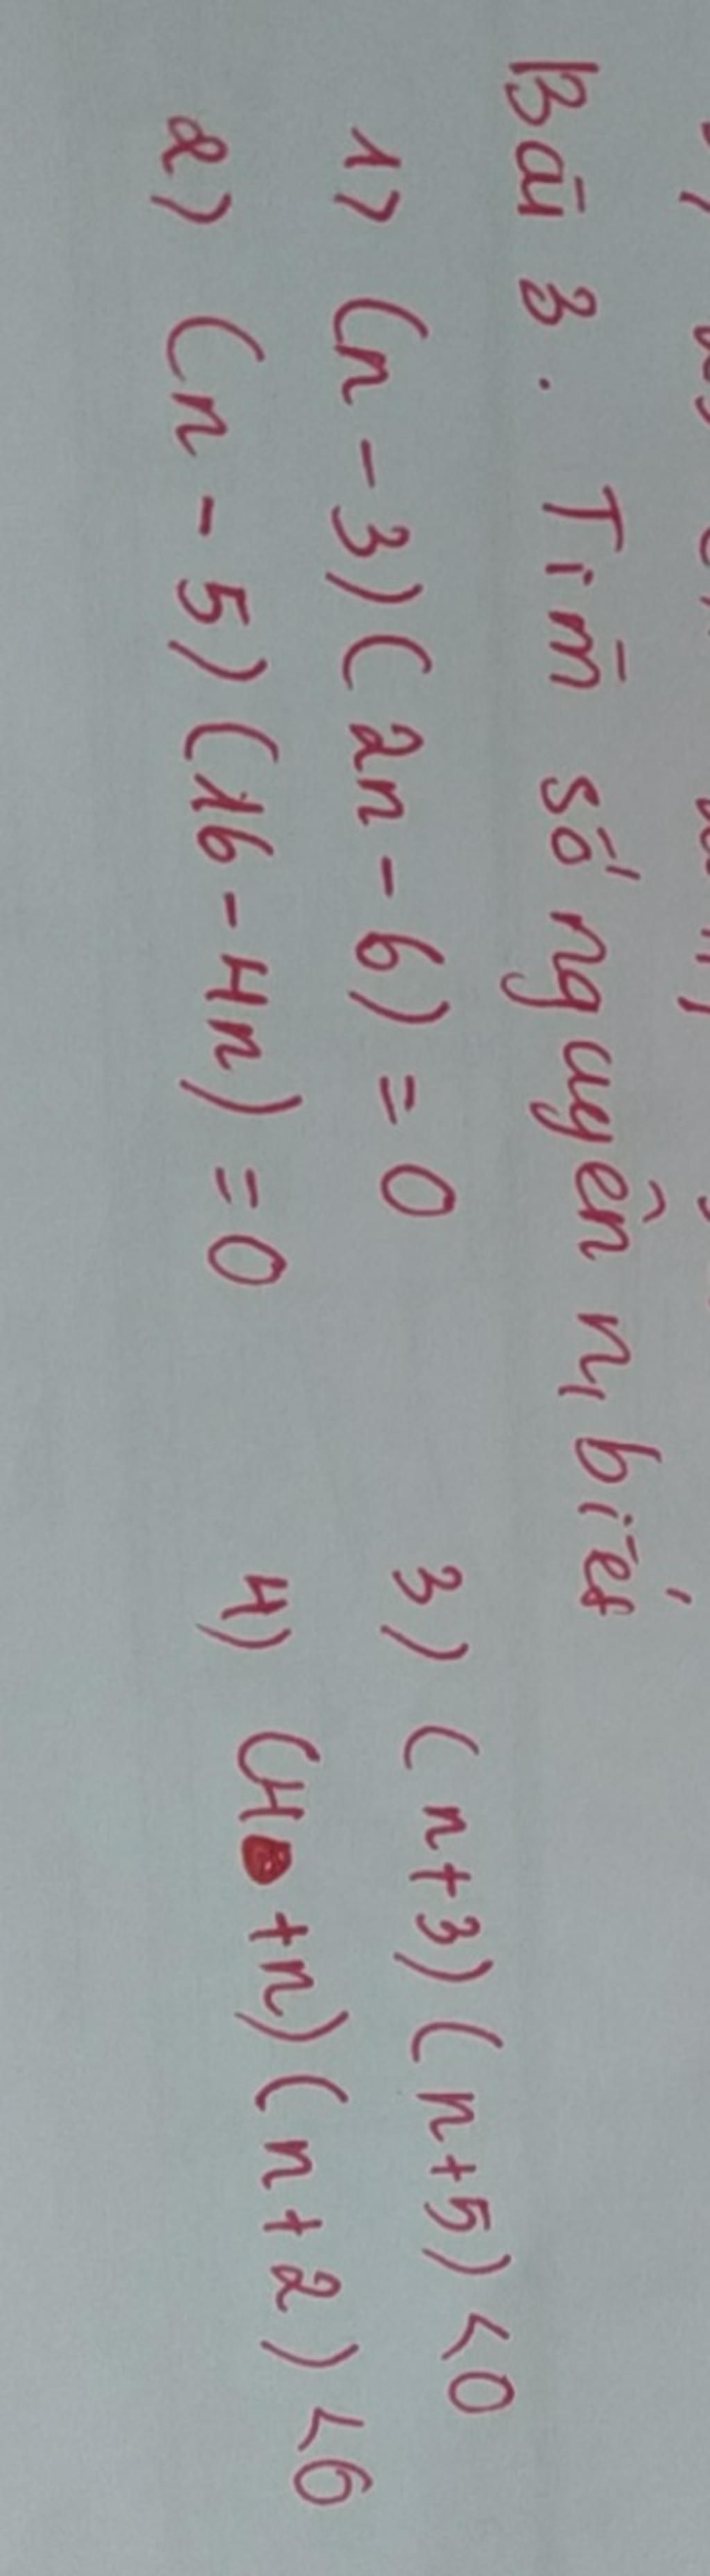 Bài 3. Tìm số nguyên n, biết
1) (n - 3)(2n - 6) = 0
3) (n+3)(n+5) <0
2) (n - 5)(16 - 4n) = 0
4) (4 +n)(n+2) <0